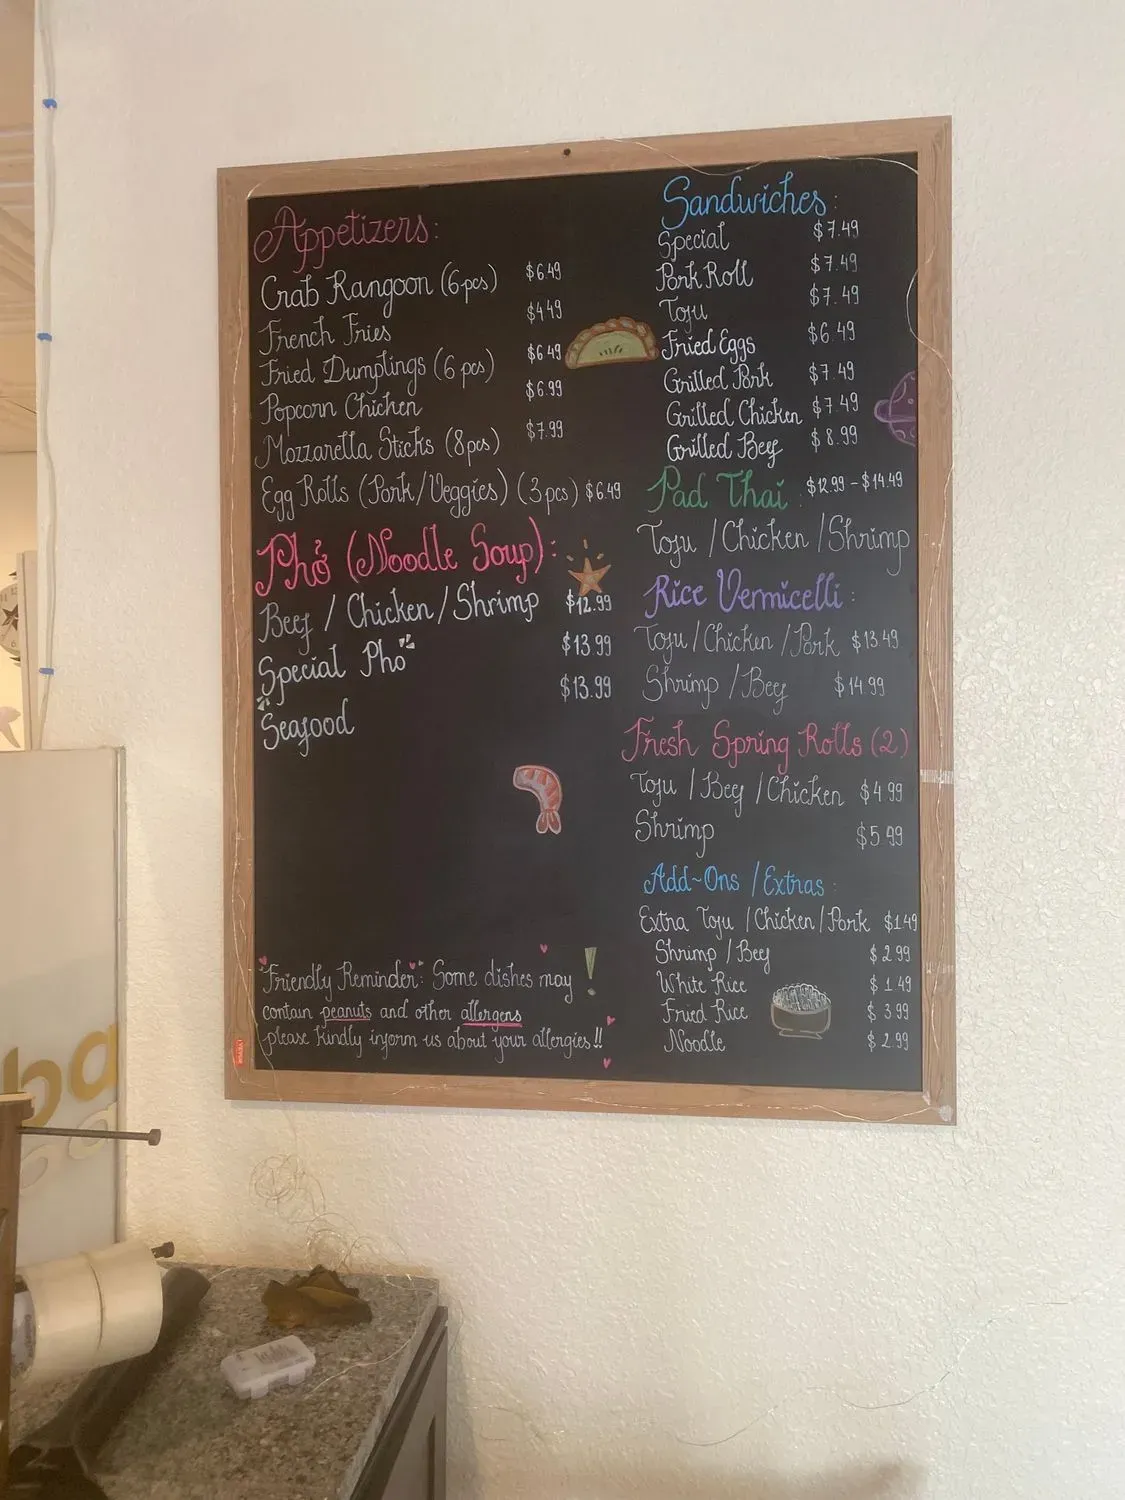 Appetizers:
Crab Rangoon (6pcs) $6.49
French Fries $4.49
Fried Dumplings (6 pcs) $6.49
Popcorn Chicken $6.99
Mozzarella Sticks (8pcs) $7.99
Egg Rolls (Pork/Veggies) (3pcs) $6.49
Phở (Noodle Soup):
Beef / Chicken / Shrimp $12.99
Special Pho $13.99
Seafood $13.99
"Friendly Reminder": Some dishes may !
contain peanuts and other allergens
please kindly inform us about your allergies!!
Sandwiches:
Special $7.49
Pork Roll $7.49
Tofu $7.49
Fried Eggs $6.49
Grilled Pork $7.49
Grilled Chicken $7.49
Grilled Beef $8.99
Pad Thai: $12.99 - $14.49
Tofu / Chicken / Shrimp
Rice Vermicelli:
Tofu / Chicken / Pork $13.49
Shrimp / Beef $14.99
Fresh Spring Rolls (2)
Tofu / Beef / Chicken $4.99
Shrimp $5.99
Add-Ons / Extras:
Extra Tofu / Chicken / Pork $1.49
Shrimp / Beef $2.99
White Rice $1.49
Fried Rice $3.99
Noodle $2.99
ba